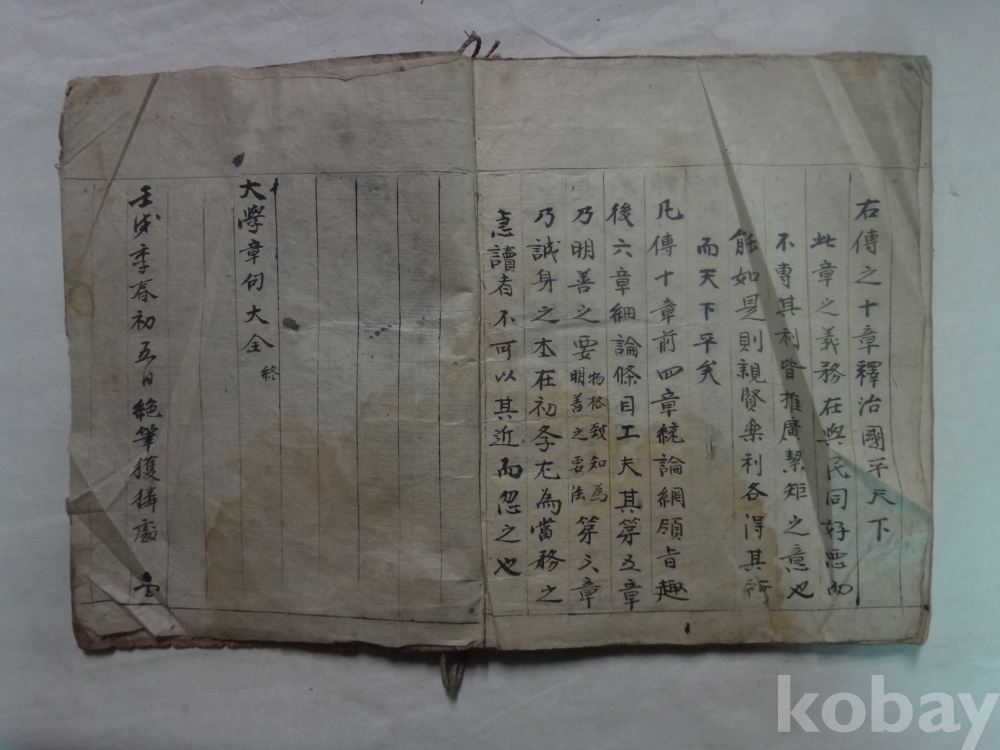 右傳之十章釋治國平天下
此章之義務在與民同好惡而
不專其利皆推廣絜矩之意也
能如是則親賢樂利各得其所
而天下平矣
凡傳十章前四章統論綱領旨趣
後六章細論條目工夫其第五章
乃明善之要物格致知為明善之要法第六章
乃誠身之本在初學尤為當務之
急讀者不可以其近而忽之也
大學章句大全終
壬戌季春初五日絶筆獲麟處
kobay